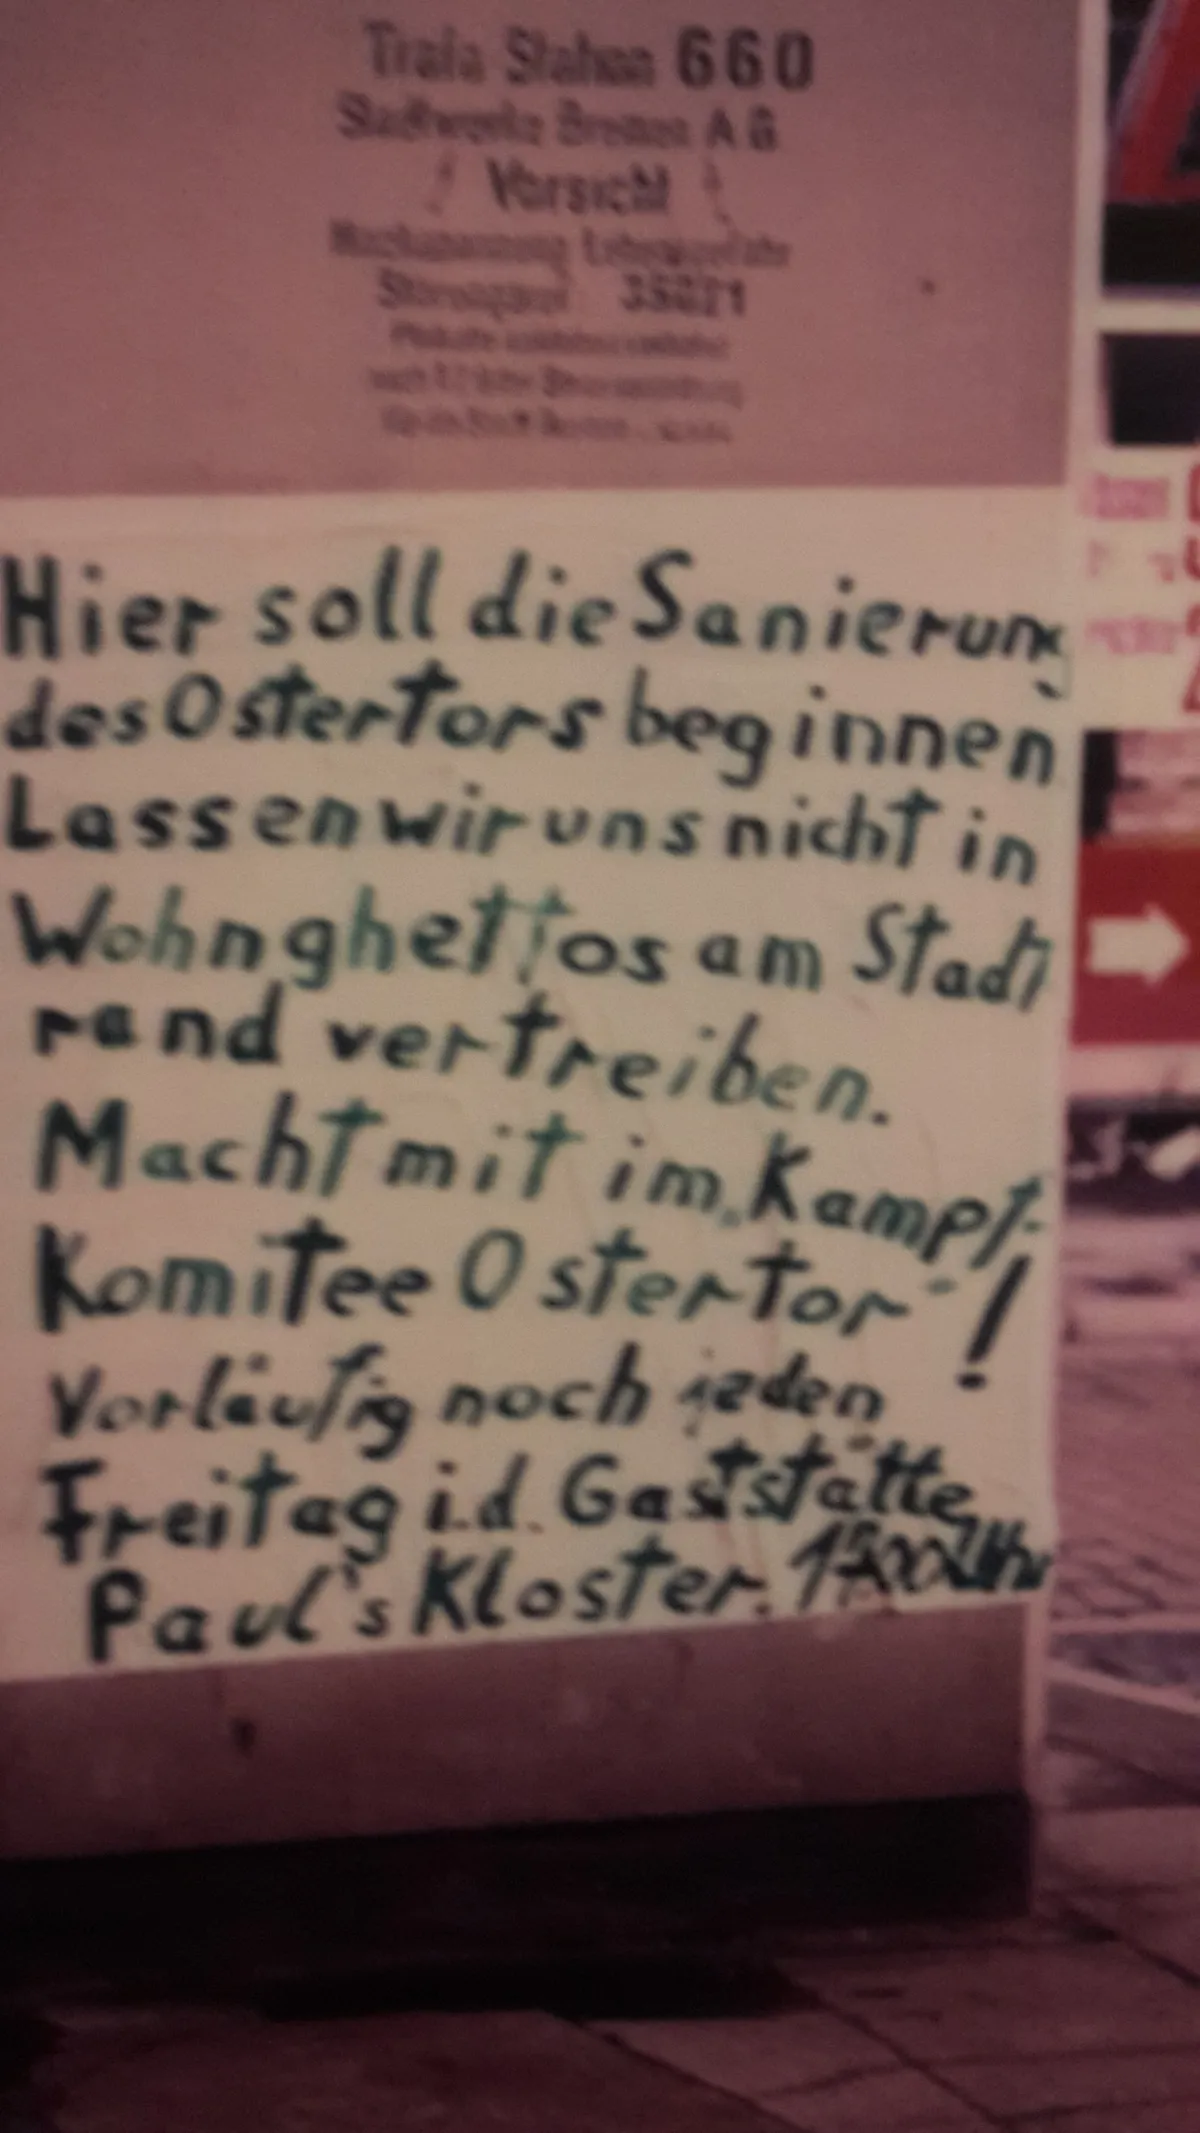 Trafo Station 660
Stadtwerke Bremen AG
! Vorsicht !
Hochspannung Lebensgefahr
Störungsruf 35021
Hier soll die Sanierung
des Ostertors beginnen
Lassen wir uns nicht in
Wohnghettos am Stadt
rand vertreiben.
Macht mit im „Kampf-
Komitee Ostertor“!
Vorläufig noch jeden
Freitag i.d. Gaststätte
Paul's Kloster.